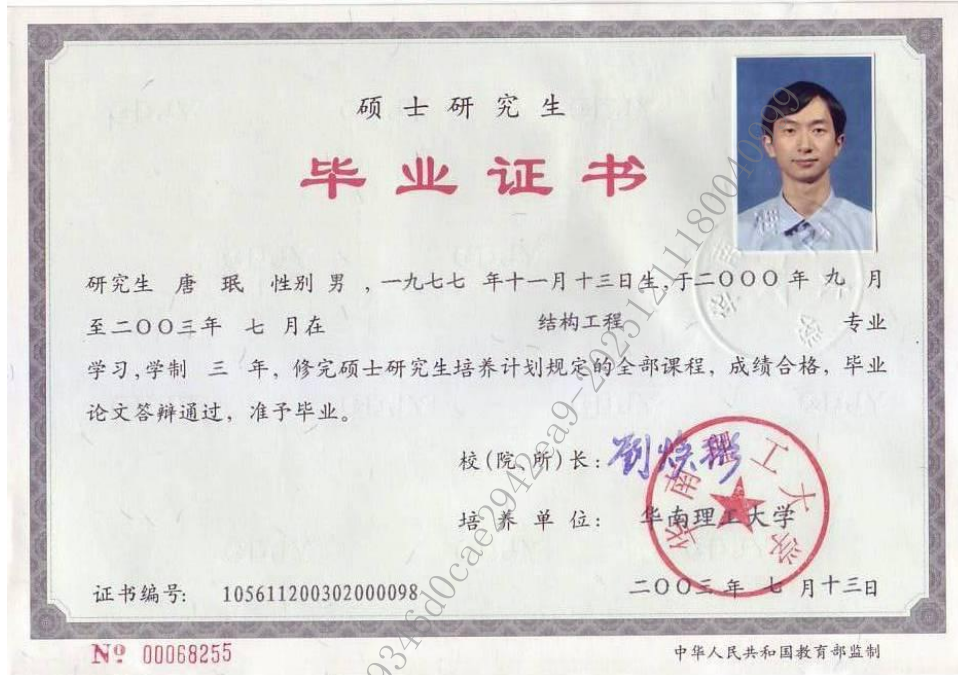 硕士研究生
毕业证书
研究生 唐 珉 性别 男 ,一九七七 年十一月十三日生,于二〇〇〇 年 九 月
至二〇〇三年 七 月在 结构工程 专业
学习,学制 三 年, 修完硕士研究生培养计划规定的全部课程, 成绩合格, 毕业
论文答辩通过, 准予毕业。
校(院、所)长: 劉焕彬
培 养 单 位: 华南理工大学
华南理工大学
证书编号: 105611200302000098
二〇〇三 年 七 月十三日
№ 00068255
中华人民共和国教育部监制